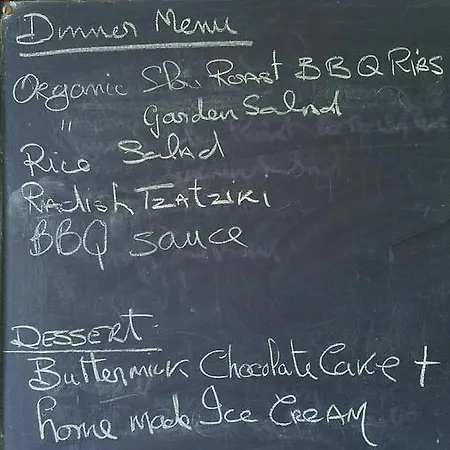 Dinner Menu
Organic Slow Roast BBQ Ribs
" Garden Salad
Rice Salad
Radish Tzatziki
BBQ sauce
DESSERT
Buttermilk Chocolate Cake +
home made Ice Cream